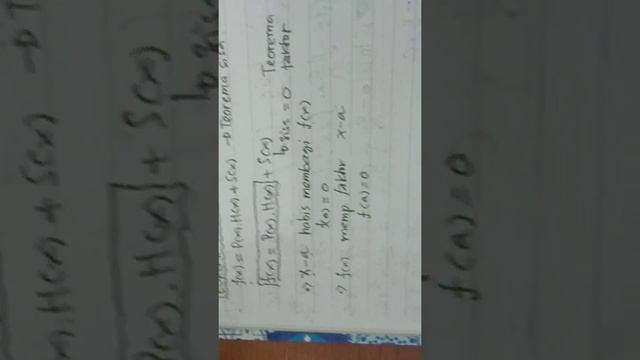 f(x) = P(x).H(x) + S(x) → Teorema sisa
f(x) = P(x).H(x) + S(x)
↳ sisa = 0 Teorema faktor
⇒ x-a habis membagi f(x)
f(a) = 0
⇒ f(x) memp. faktor x-a
f(a) = 0